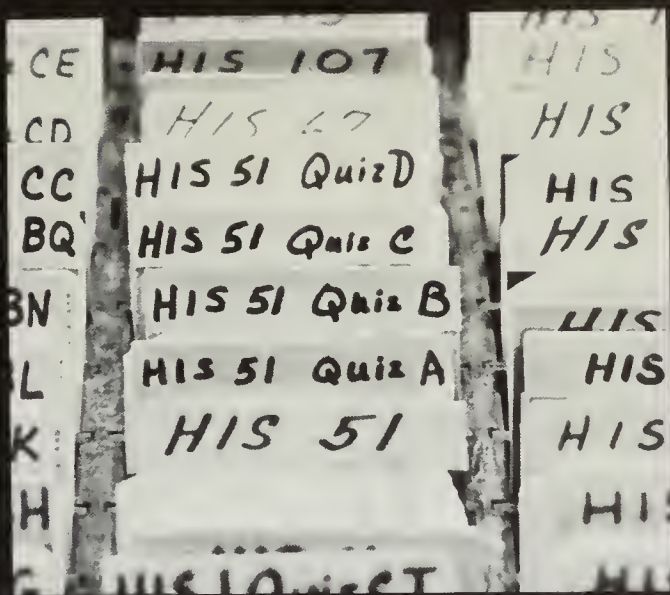 CE
CD
CC
BQ
BN
L
K
H
G
HIS 107
HIS 67
HIS 51 Quiz D
HIS 51 Quiz C
HIS 51 Quiz B
HIS 51 Quiz A
HIS 51
HIS
HIS
HIS
HIS
HIS
HIS
HIS
HIS